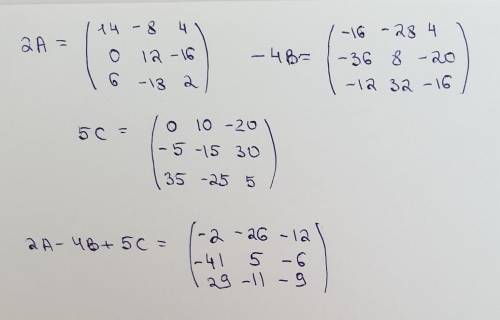 2A = ( 14 -8 4 ; 0 12 -16 ; 6 -18 2 )
-4B = ( -16 -28 4 ; -36 8 -20 ; -12 32 -16 )
5C = ( 0 10 -20 ; -5 -15 30 ; 35 -25 5 )
2A - 4B + 5C = ( -2 -26 -12 ; -41 5 -6 ; 29 -11 -9 )